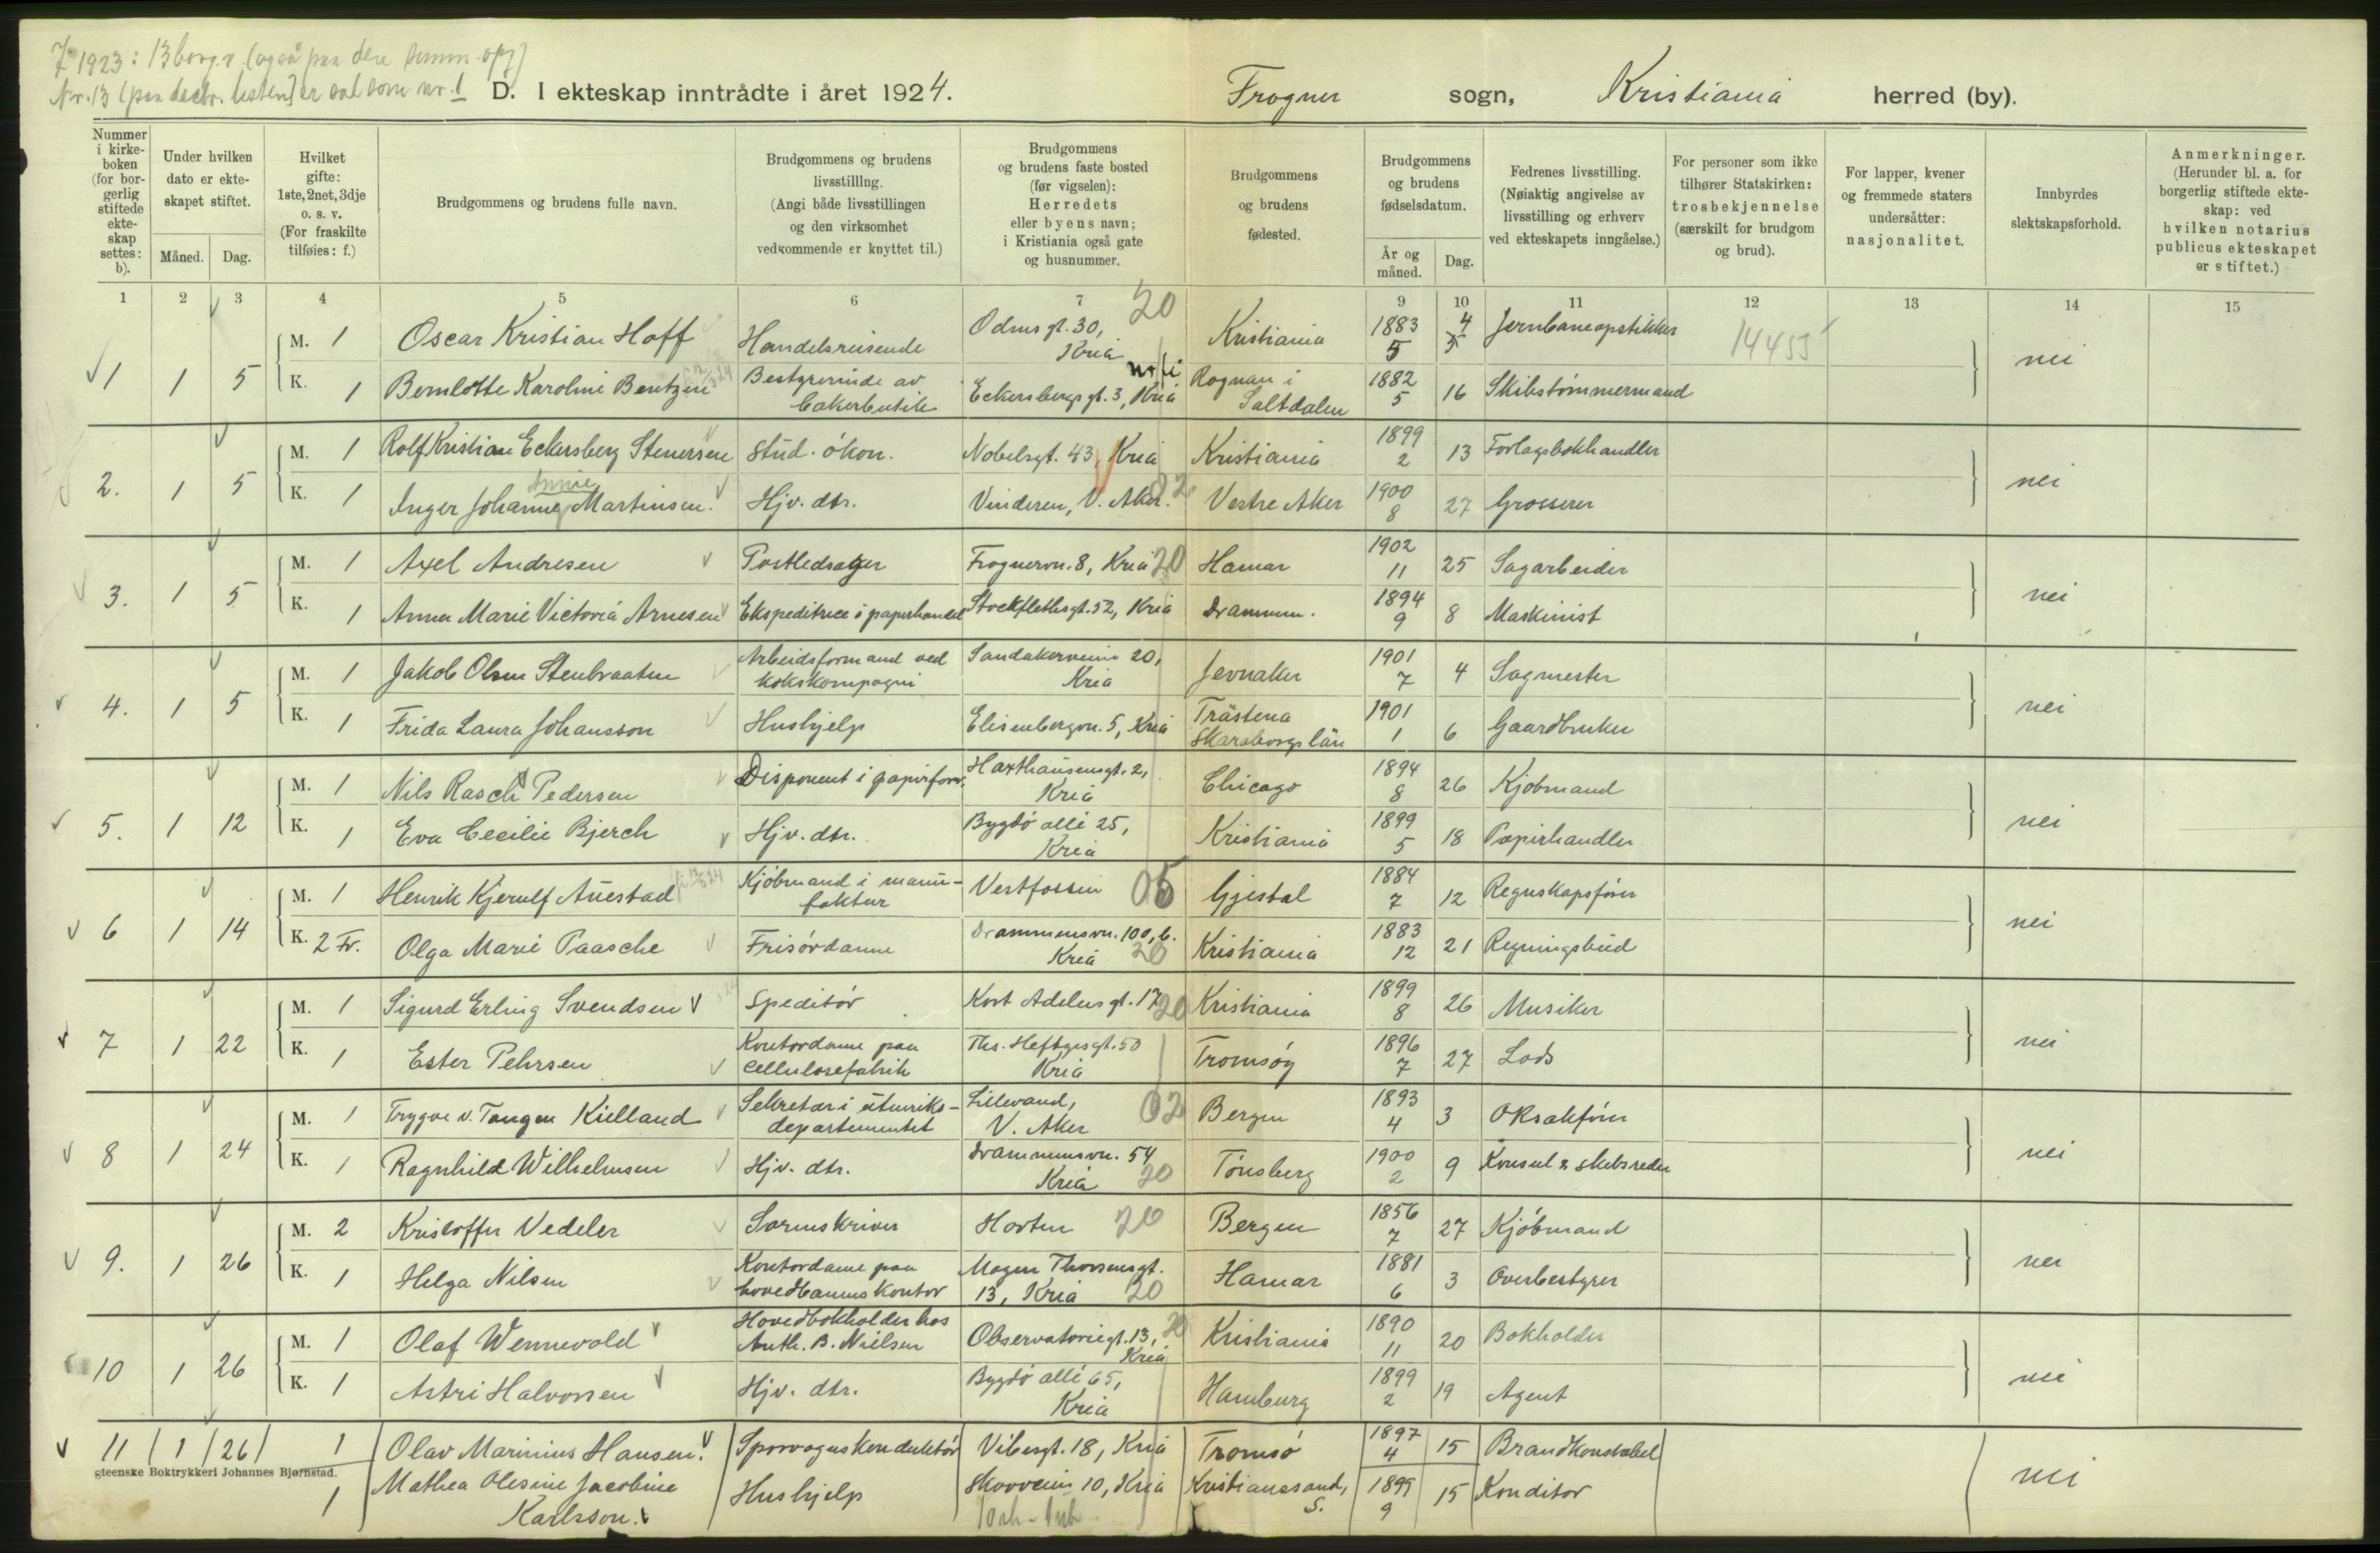 7. 1923: 13 borg.v. (også paa den
Nr. 13 (paa decbr. listen) er som nr. 1
D. I ekteskap inntrådte i året 1924.
Frogner sogn, Kristiania herred (by).
Nummer i kirke-boken (for bor-gerlig stiftede ekte-skap settes: b).
Under hvilken dato er ekte-skapet stiftet.
Måned. Dag.
Hvilket gifte: 1ste, 2net, 3dje o. s. v. (For fraskilte tilføies: f.)
Brudgommens og brudens fulle navn.
Brudgommens og brudens livsstilling. (Angi både livsstillingen og den virksomhet vedkommende er knyttet til.)
Brudgommens og brudens faste bosted (før vigselen): Herredets eller byens navn; i Kristiania også gate og husnummer.
Brudgommens og brudens fødested.
Brudgommens og brudens fødselsdatum.
År og måned. Dag.
Fedrenes livsstilling. (Nøiaktig angivelse av livsstilling og erhverv ved ekteskapets inngåelse.)
For personer som ikke tilhører Statskirken: trosbekjennelse (særskilt for brudgom og brud).
For lapper, kvener og fremmede staters undersåtter: nasjonalitet.
Innbyrdes slektskapsforhold.
Anmerkninger. (Herunder bl. a. for borgerlig stiftede ekte-skap: ved hvilken notarius publicus ekteskapet er stiftet.)
1 2 3 4 5 6 7 8 9 10 11 12 13 14 15
1 1 5 M. 1 Oscar Kristian Hoff Handelsreisende Odins gt. 30, Kria 20 Kristiania 1883 5 4 Jernbaneopstikker 14455 nei
K. 1 Bernlotte Karoline Bentzen Bestyrerinde av bakerbutik Eckersbergs gt. 3, Kria Rognan i Saltdalen 1882 5 16 Skibstømmermand
2. 1 5 M. 1 Rolf Kristian Eckersberg Stenersen stud. økon. Nobelsgt. 43, Kria Kristiania 1899 2 13 Forlagsbokhandler nei
K. 1 Inger Johanne Annie Martinsen. Hjv. dtr. Vinderen, V. Aker. 02 Vestre Aker 1900 8 27 Grosserer
3. 1 5 M. 1 Axel Andresen Postledsager Frognervn. 8, Kria 20 Hamar 1902 11 25 Sagarbeider nei
K. 1 Anna Marie Victoria Arnesen Ekspeditrice i papirhandel Stockflethsgt. 52, Kria Drammen. 1894 9 8 Maskinist
4. 1 5 M. 1 Jakob Olsen Stenbraaten Arbeidsformand ved kokskompagni Sandakerveien 20, Kria Jevnaker 1901 7 4 Sagmester nei
K. 1 Frida Laura Johansson Hushjelp Elisenbergvn. 5, Kria Trästena Skaraborgs län 1901 1 6 Gaardbruker
5. 1 12 M. 1 Nils Rasch Pedersen Disponent i papirforr. Haxthausensgt. 2, Kria Chicago 1894 8 26 Kjøbmand nei
K. 1 Eva Cecilie Bjerch Hjv. dtr. Bygdø allé 25, Kria Kristiania 1899 5 18 Papirhandler
6 1 14 M. 1 Henrik Kjerulf Auestad Kjøbmand i manu-faktur Vestfossen 05 Gjestal 1884 7 12 Regnskapsfører nei
K. 2 Fr. Olga Marie Paasche Frisørdame Drammensvn. 100, b. Kria 20 Kristiania 1883 12 21 Regningsbud
7 1 22 M. 1 Sigurd Erling Svendsen Speditør Kort Adelers gt. 17 20 Kristiania 1899 8 26 Musiker nei
K. 1 Ester Pehrsen Kontordame paa cellulosefabrik Ths. Heftyesgt. 50 Kria Tromsø 1896 7 27 Lods
8 1 24 M. 1 Trygve v. Tangen Kielland Sekretær i utenriks-departementet Lillevand, V. Aker 02 Bergen 1893 4 3 O.R.sakfører nei
K. 1 Ragnhild Wilhelmsen Hjv. dtr. Drammensvn. 54 Kria 20 Tønsberg 1900 2 9 Konsul & skibsreder
9. 1 26 M. 2 Kristoffer Vedeler Sorenskriver Horten 20 Bergen 1856 7 27 Kjøbmand nei
K. 1 Helga Nilsen Kontordame paa hovedbanens kontor Magen Thorsensgt. 13, Kria 20 Hamar 1881 6 3 Overbestyrer
10 1 26 M. 1 Olaf Wennevold Hovedbokholder hos Anth. B. Nielsen Observatoriegt. 13, Kria 20 Kristiania 1890 11 20 Bokholder nei
K. 1 Astri Halvorsen Hjv. dtr. Bygdø allé 65, Kria Hamburg 1899 2 19 Agent
11 1 26 1 Olav Marinius Hansen. Sporvognskonduktør Vibesgt. 18, Kria Tromsø 1897 4 15 Brandkonstabel nei
Steenske Boktrykkeri Johannes Bjørnstad.
1 Mathea Olesine Jacobine Karlsson. Hushjelp Skovveien 10, Kria Kristianssand, S. 1899 9 15 Konditor